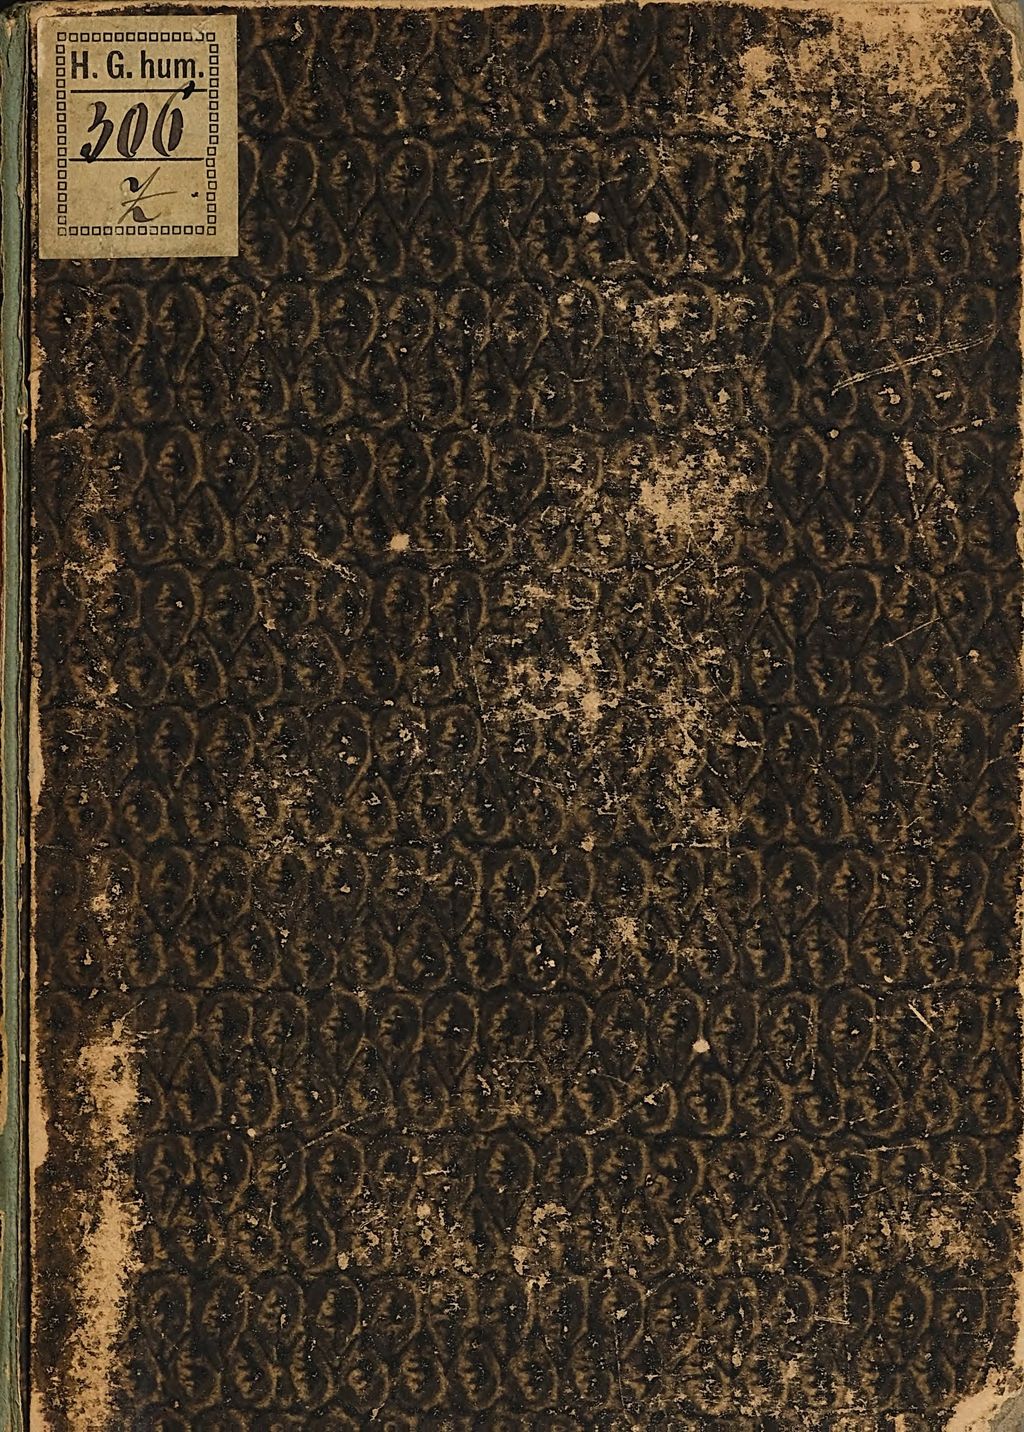 H. G. hum.
306
Z